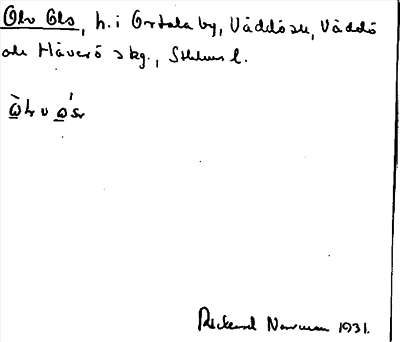 Olv Ols, h. i Ortala by, Väddö sn, Väddö
och Häverö skg., Sthlms l.
Rickard Norrman 1931.